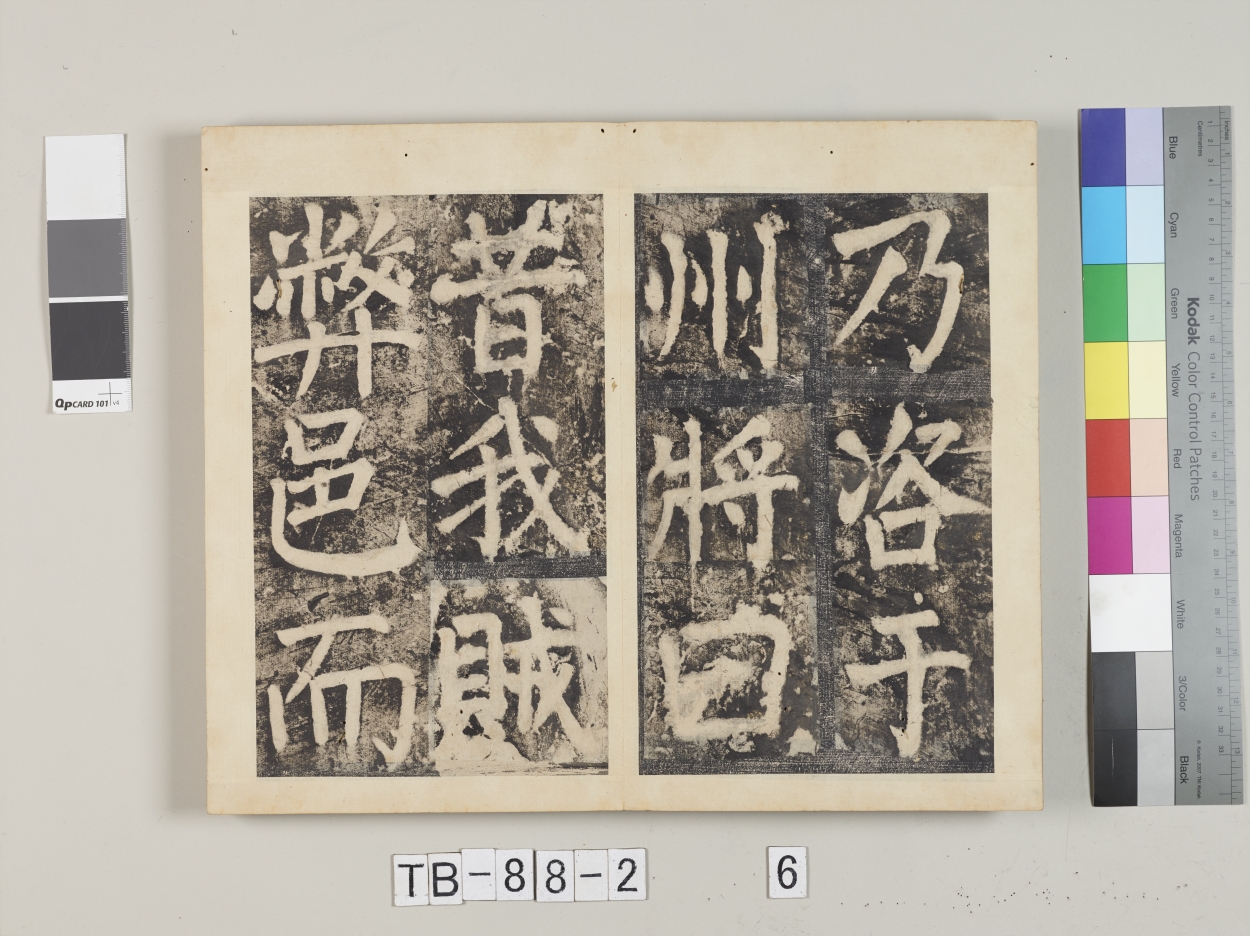 乃咨于
州將曰
昔我賊
弊邑而
QpCARD 101 v4
Kodak Color Control Patches
Blue
Cyan
Green
Yellow
Red
Magenta
White
3/Color
Black
Centimetres
Inches
TB-88-2 6